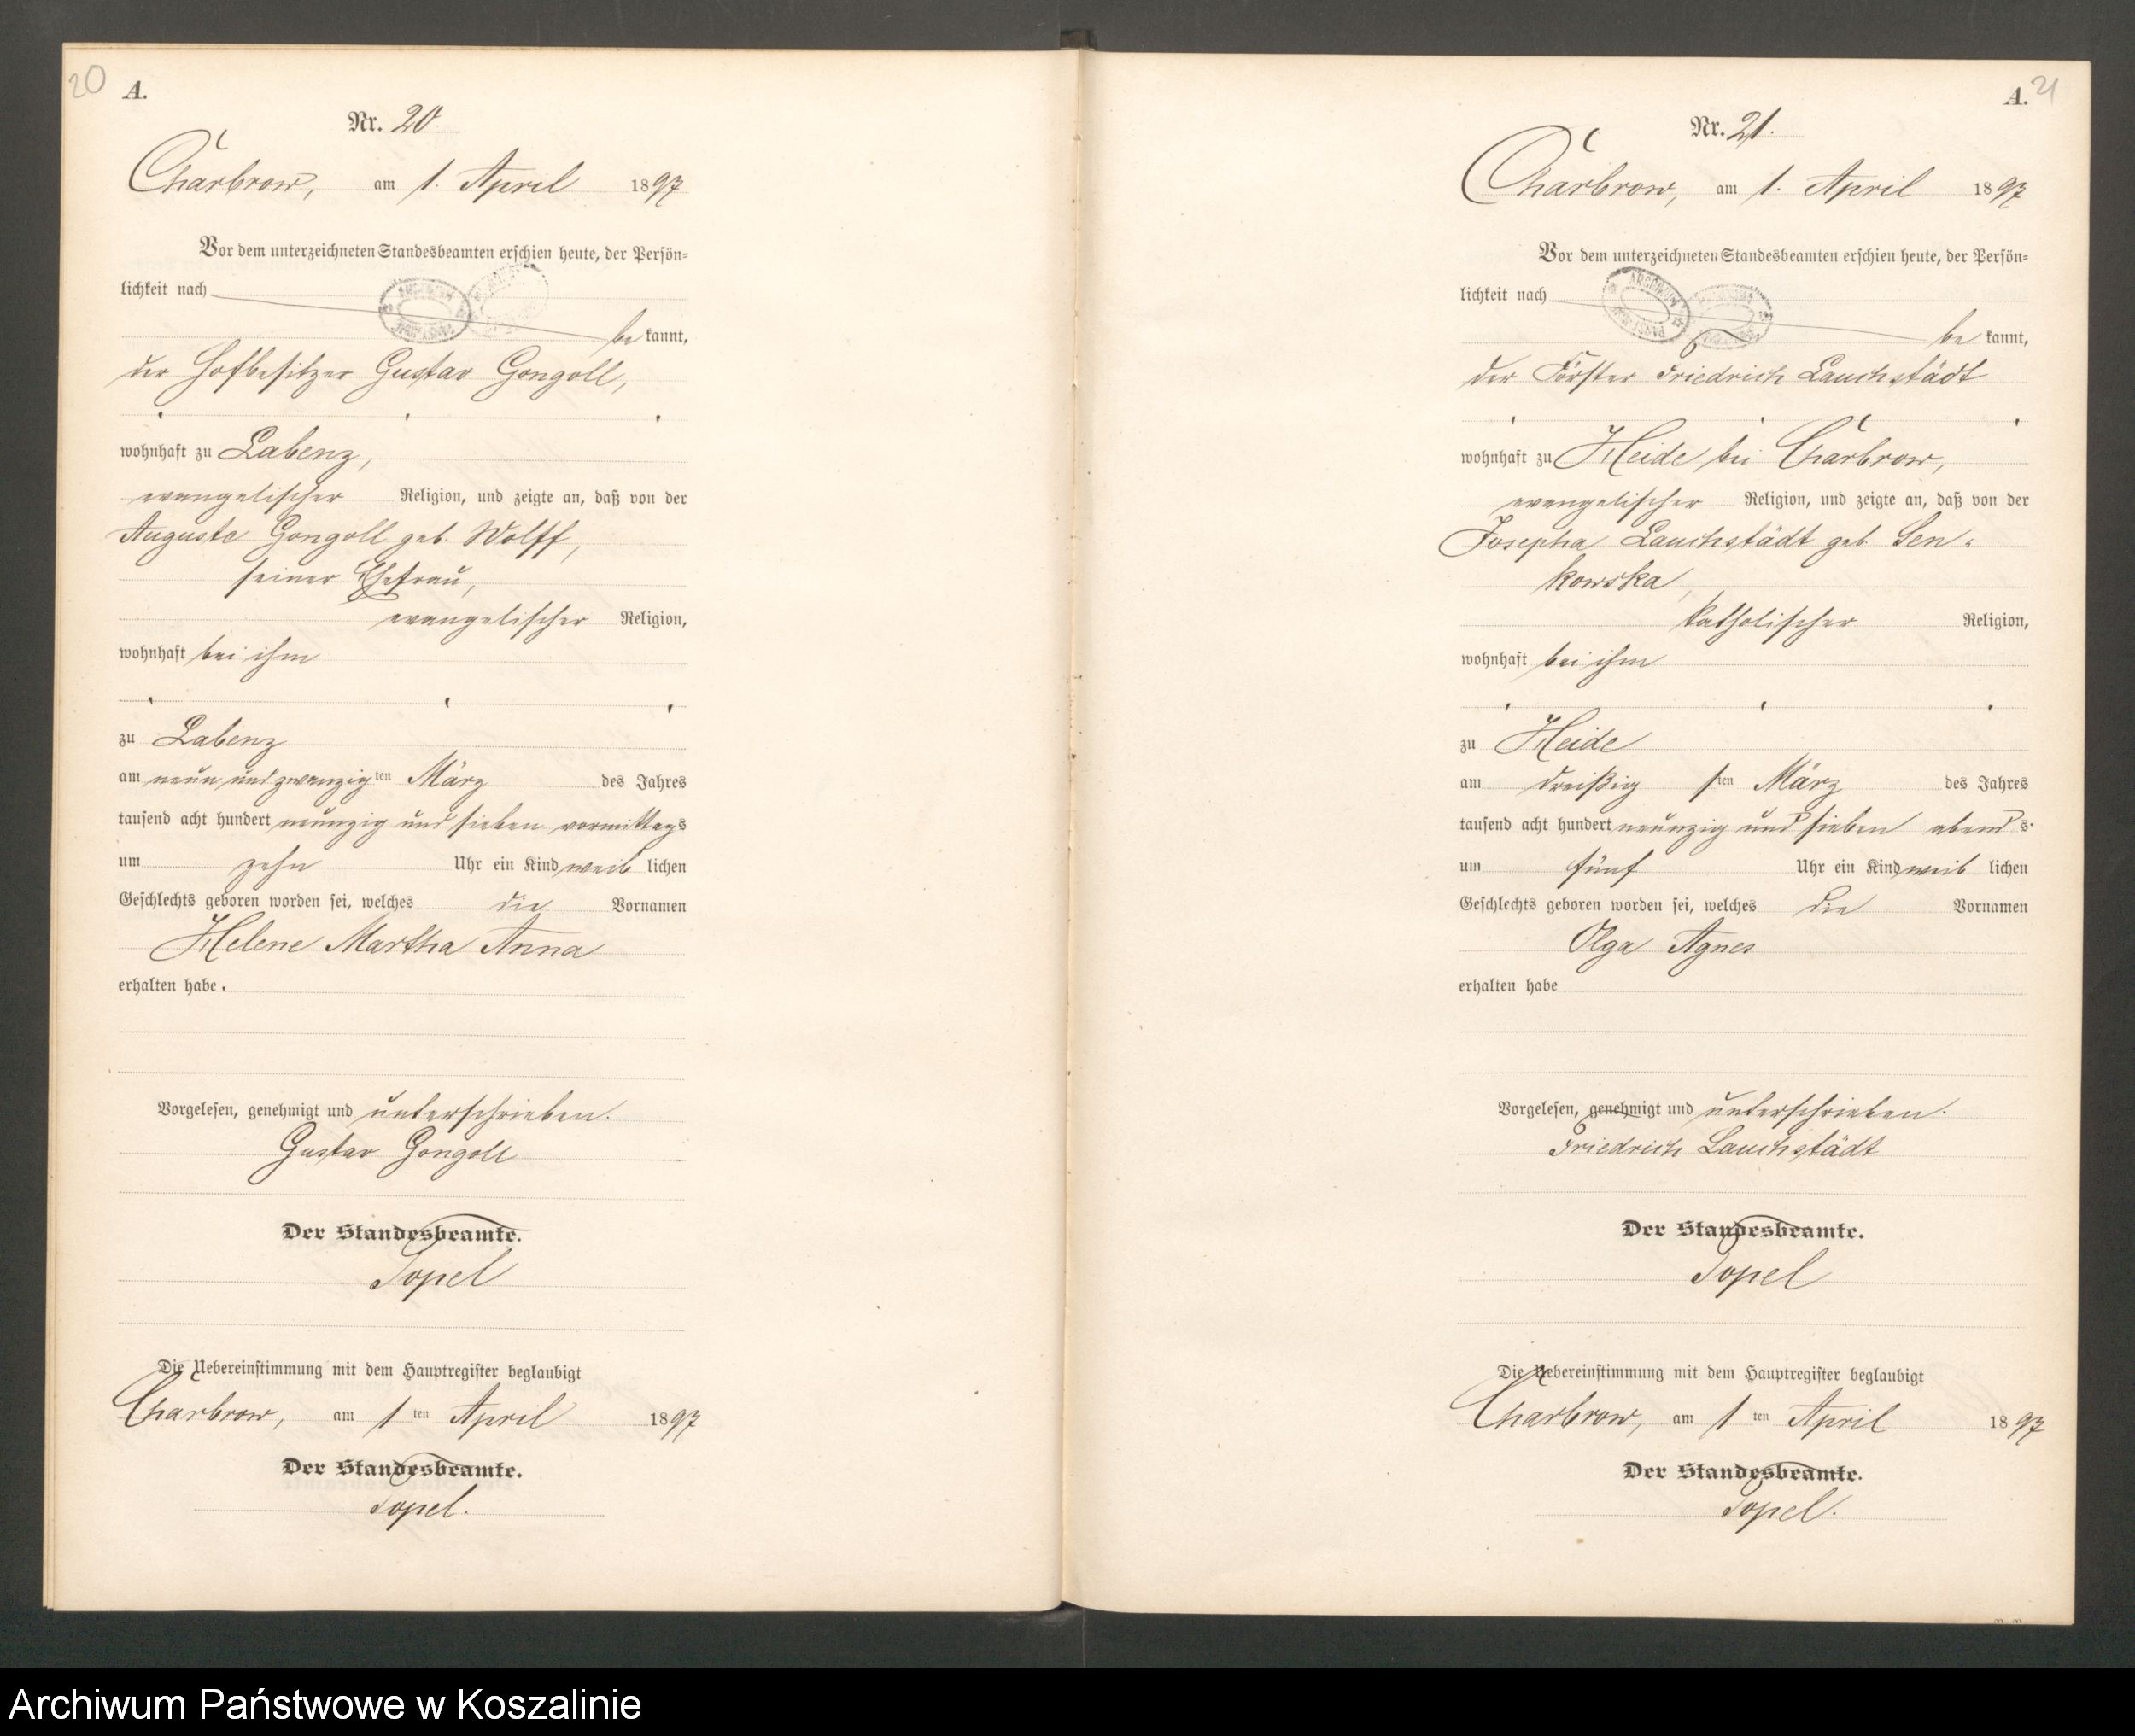 20
A.
Nr. 20.
Charbrow, am 1. April 1897
Vor dem unterzeichneten Standesbeamten erschien heute, der Persön-
lichkeit nach
be kannt,
der Hofbesitzer Gustav Gongoll,
wohnhaft zu Labenz,
evangelischer Religion, und zeigte an, daß von der
Auguste Gongoll geb. Wolff,
seiner Ehefrau,
evangelischer Religion,
wohnhaft bei ihm
zu Labenz
am neun und zwanzig ten März des Jahres
tausend acht hundert neunzig und sieben vormittags
um zehn Uhr ein Kind weib lichen
Geschlechts geboren worden sei, welches die Vornamen
Helene Martha Anna
erhalten habe.
Vorgelesen, genehmigt und unterschrieben.
Gustav Gongoll
Der Standesbeamte.
Topel
Die Uebereinstimmung mit dem Hauptregister beglaubigt
Charbrow, am 1 ten April 1897
Der Standesbeamte.
Topel.
21
A.
Nr. 21.
Charbrow, am 1. April 1897
Vor dem unterzeichneten Standesbeamten erschien heute, der Persön-
lichkeit nach
be kannt,
der Förster Friedrich Lauchstädt
wohnhaft zu Heide bei Charbrow,
evangelischer Religion, und zeigte an, daß von der
Josepha Lauchstädt geb. Sen-
kowska,
katholischer Religion,
wohnhaft bei ihm
zu Heide
am dreißig sten März des Jahres
tausend acht hundert neunzig und sieben abends
um fünf Uhr ein Kind weib lichen
Geschlechts geboren worden sei, welches die Vornamen
Olga Agnes
erhalten habe
Vorgelesen, genehmigt und unterschrieben.
Friedrich Lauchstädt
Der Standesbeamte.
Topel
Die Uebereinstimmung mit dem Hauptregister beglaubigt
Charbrow, am 1 ten April 1897
Der Standesbeamte.
Topel.
Archiwum Państwowe w Koszalinie